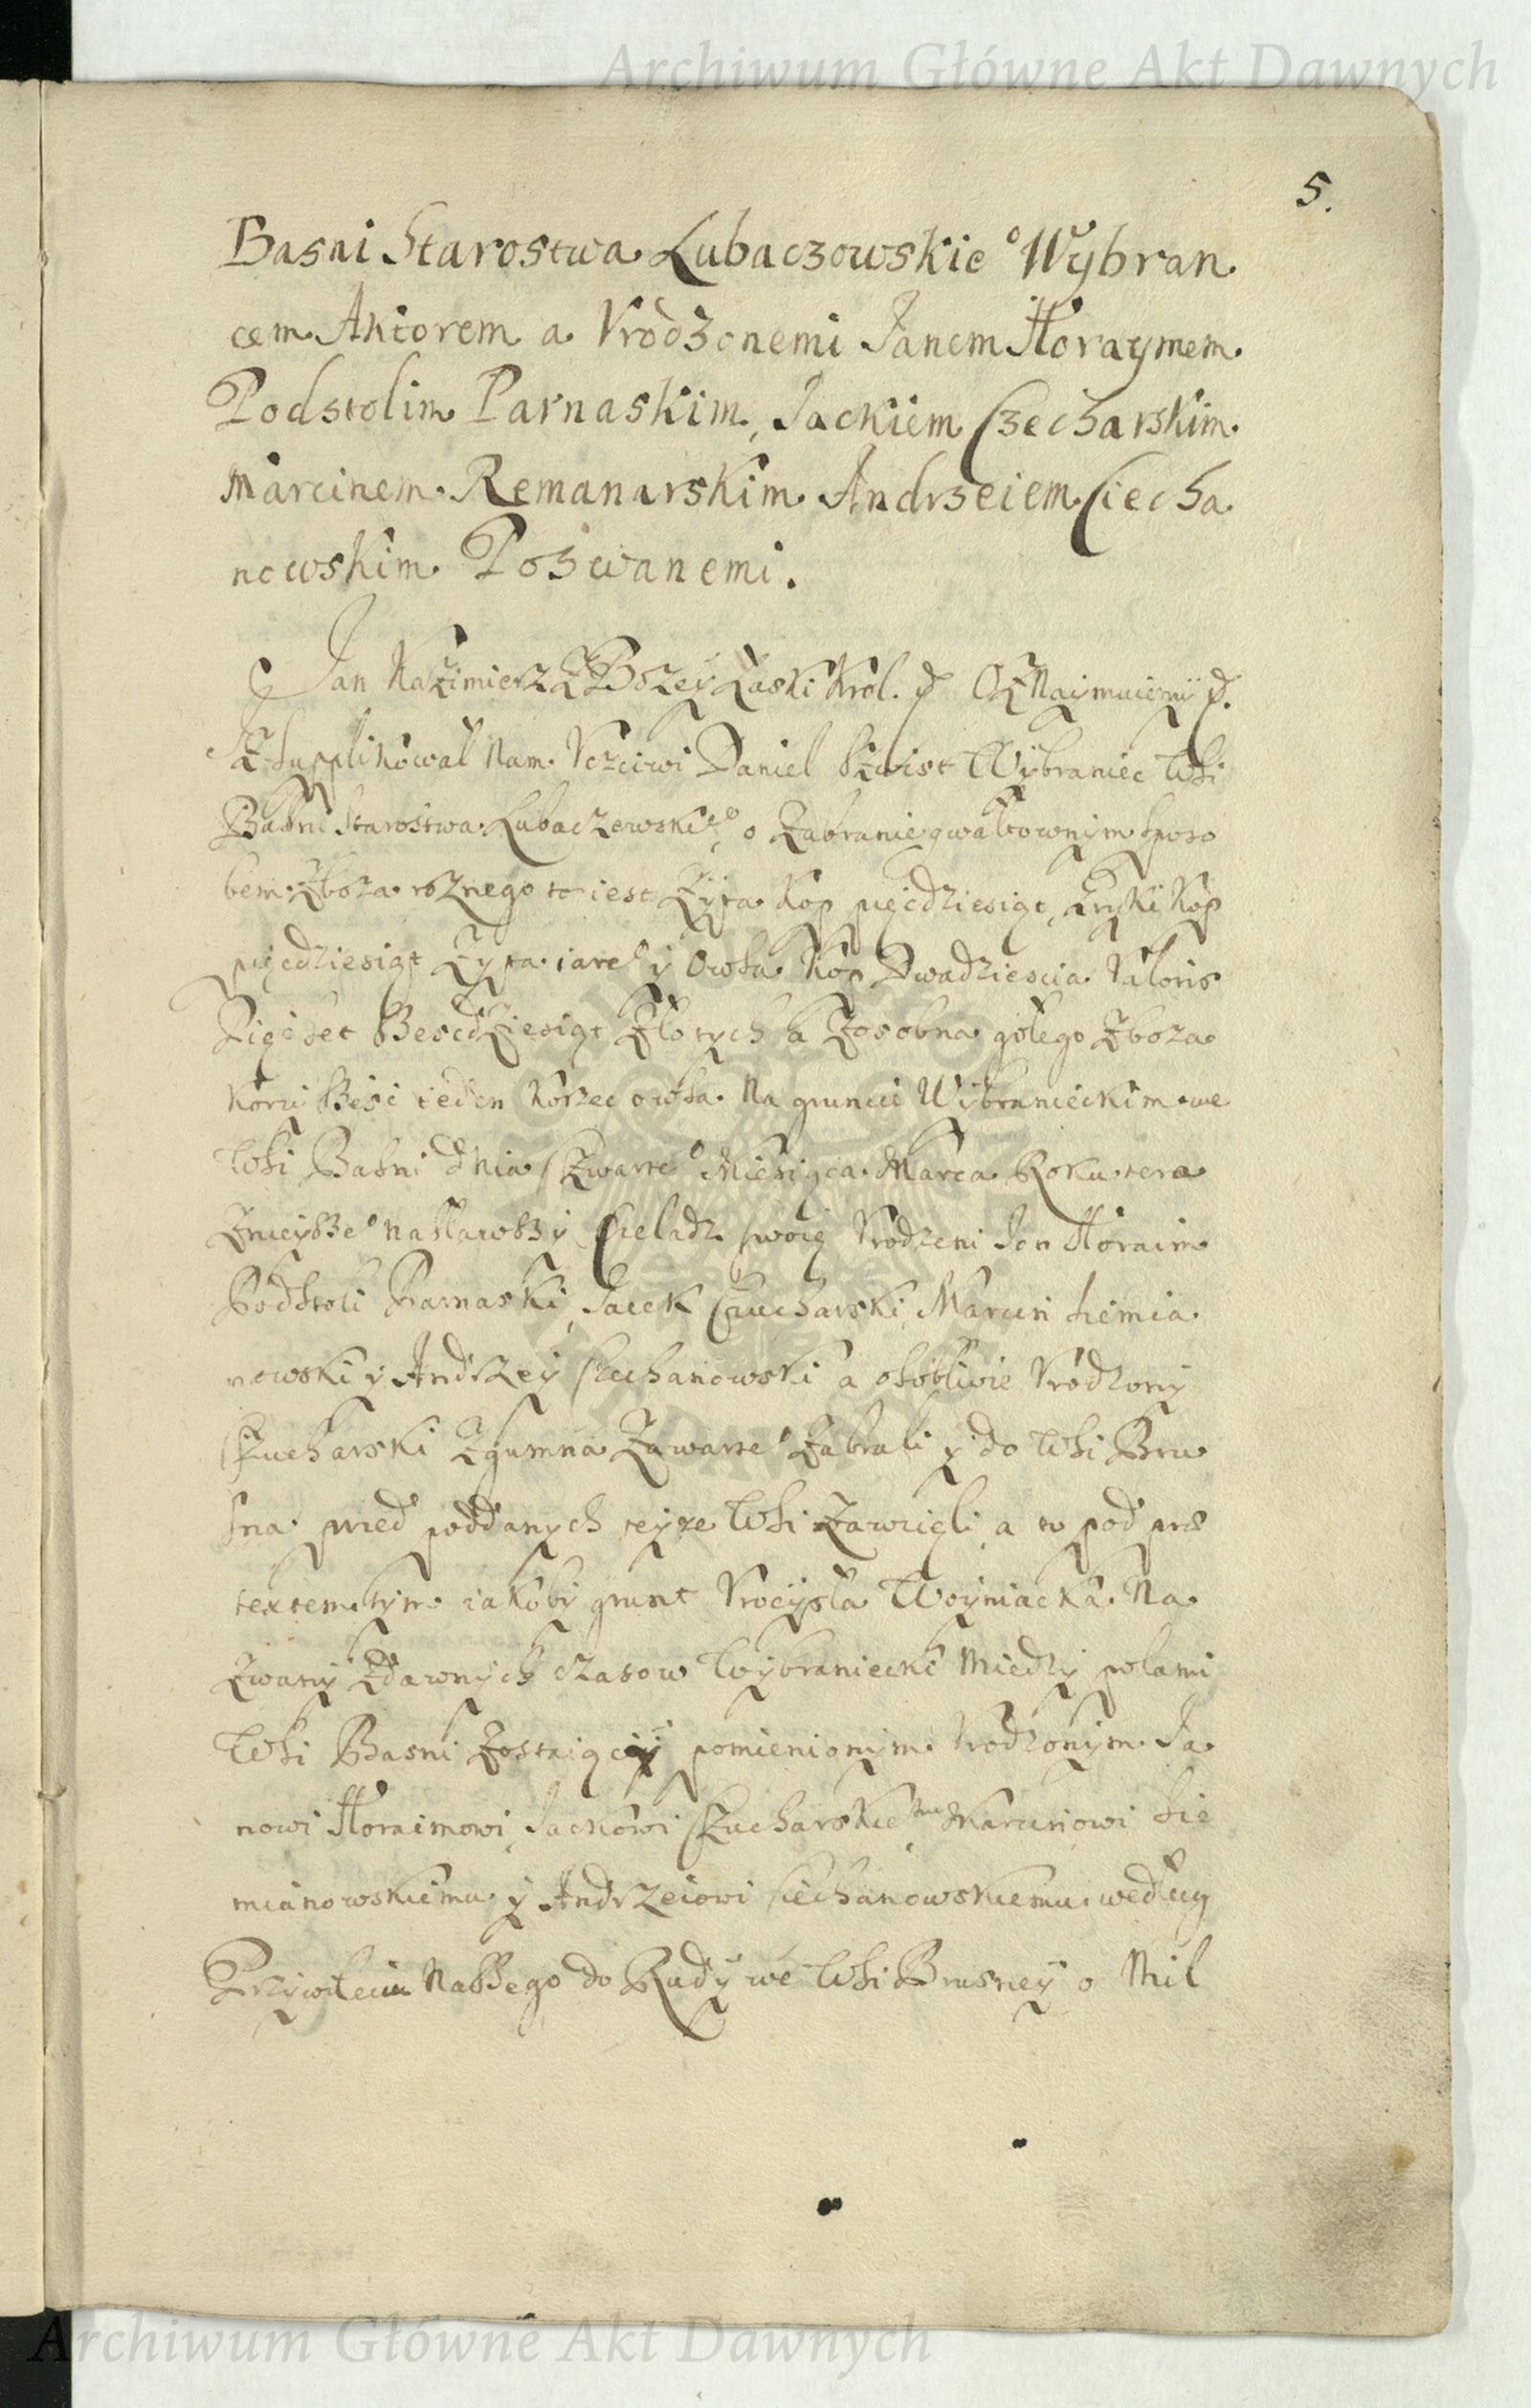 Archiwum Główne Akt Dawnych
5.
Basni Starostwa Lubaczowskie° Wybran
cem Aktorem a Vrodzonemi Janem Horaymem
Podstolim Parnaskim, Jackiem Czecharskim
Marcinem Remanarskim Andrzeiem Ciecha
nowskim Pozwanemi.
Jan Kazimierz Z Bozey Łaski Krol. Oznaymuiemy
Iz Supplikował Nam Vczciwi Daniel Wybraniec Wsi
Basni Starostwa Lubaczowskie° o Zabranie gwałtownym sposo
bem Zboza roznego to iest Zyta Kop pięcdziesiąt, Kop
pięcdziesiąt Zyta iare° y Owsa Kop Dwadziescia Valoris
Pięcset Złotych a Zosobna gołego Zboza
korcy ieden Korzec owsa Na gruncie Wybranieckim we
Wsi Basni dnia Czwarte° Miesiąca Marca Roku tera
Znieysze° Nasławszy Czeladz swoię Vrodzeni Jan Horaim
Podstoli Parnaski, Jacek Czucharski, Marcin Siemia
nowski y Andrzey Ciechanowski a osobliwie Vrodzony
Czucharski Zgumna Zawarte° Zabrali y do Wsi Bru
sna pod poddanych teyze Wsi Zawzięli, a to pod præ
textem tym iakoby grunt Vroczyska Woyniacka Na
Zwany Zdawnych czasow Wybraniecki Miedzy polami
Wsi Basni Zostaiący pomienionym Vrodzonym Ja
nowi Horaimowi, Jackowi Czucharskiemu Marcinowi Sie
mianowskiemu y Andrzeiowi Ciechanowskiemu według
Przywileiu Naszego do Rudy we Wsi Brusney o Mil
Archiwum Główne Akt Dawnych